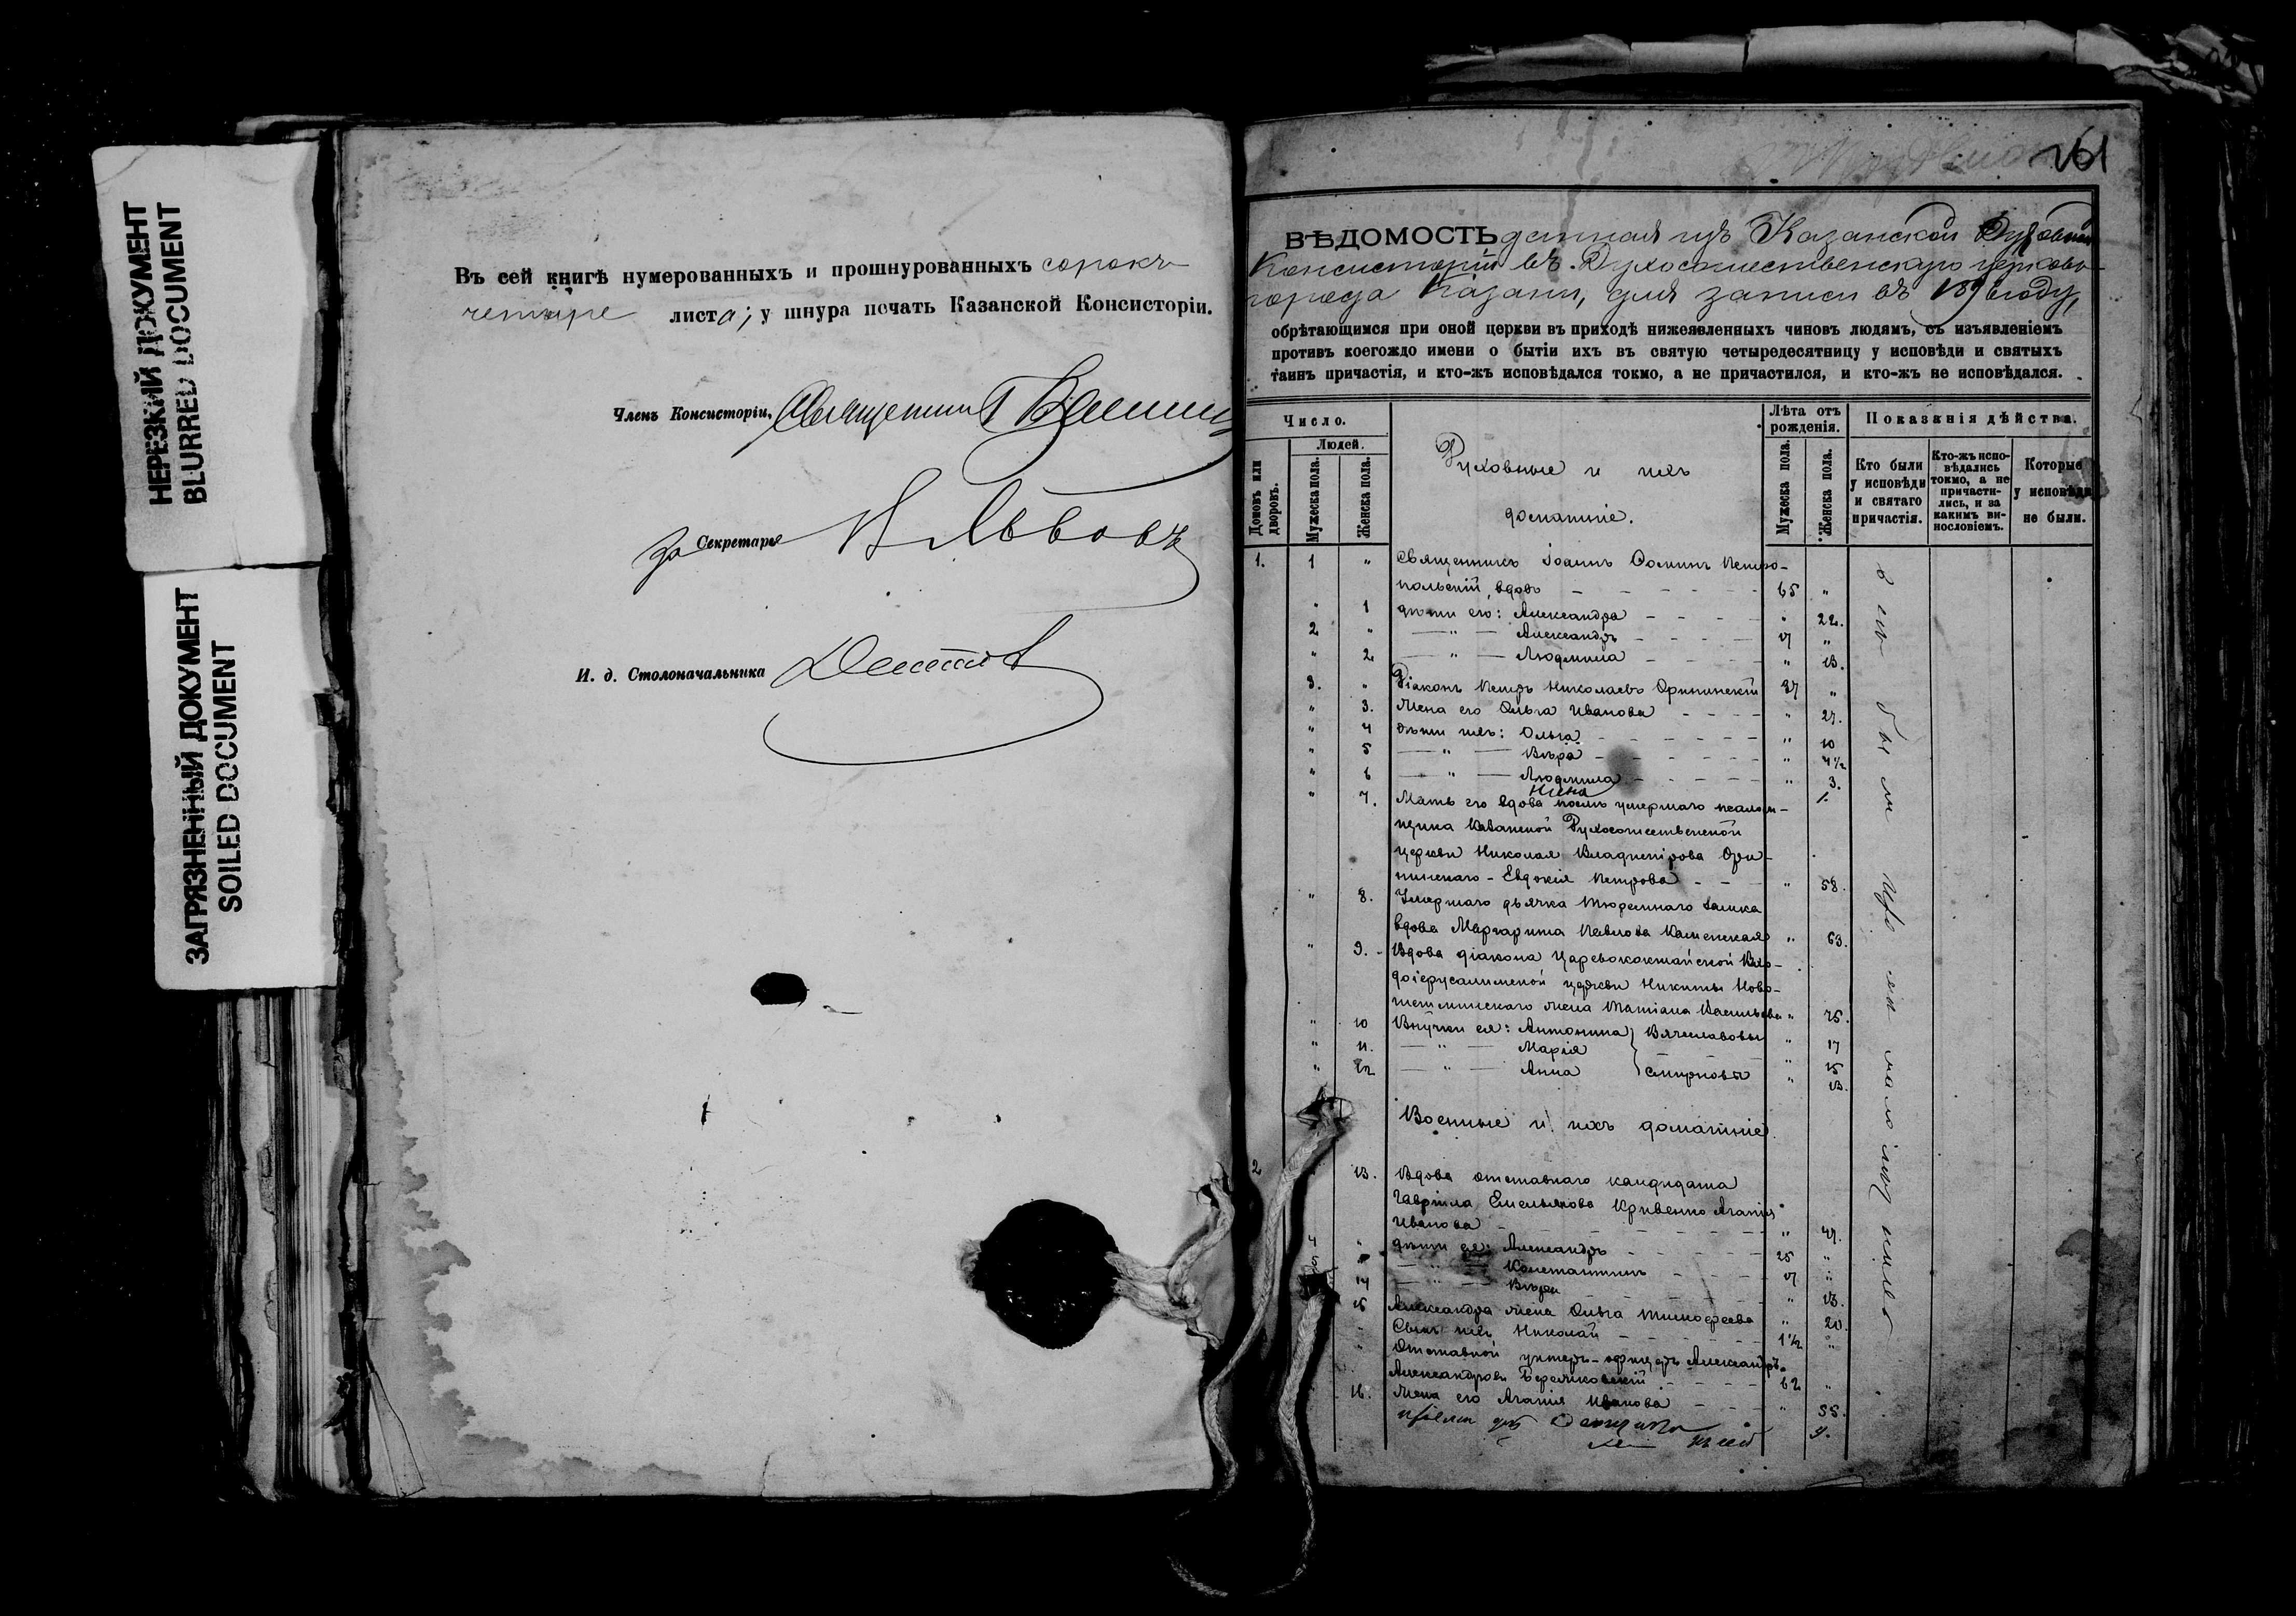 НЕРЕЗКИЙ ДОКУМЕНТ
BLURRED DOCUMENT
ЗАГРЯЗНЕННЫЙ ДОКУМЕНТ
SOILED DOCUMENT
Въ сей книгѣ нумерованныхъ и прошнурованныхъ сорокъ
четыре листа; у шнура печать Казанской Консисторіи.
Членъ Консисторіи, Священникъ
за Секретаря Н Львовъ
И. д. Столоначальника
261
ВѢДОМОСТЬ данная изъ Казанской Духовной
Консисторіи въ Духосошественскую церковь
города Казани, для записи въ году,
обрѣтающимся при оной церкви въ приходѣ нижеявленныхъ чиновъ людямъ, съ изъявленіемъ
противъ коегождо имени о бытіи ихъ въ святую четыредесятницу у исповѣди и святыхъ
таинъ причастія, и кто-жъ исповѣдался токмо, а не причастился, и кто-жъ не исповѣдался.
Число.
Домовъ или дворовъ.
Людей.
Мужеска пола.
Женска пола.
Духовные и ихъ
домашніе.
Лѣта отъ рожденія.
Мужеска пола.
Женска пола.
Показанія дѣйства.
Кто были у исповѣди и святаго причастія.
Кто-жъ исповѣдались токмо, а не причастились, и за какимъ винословіемъ.
Которые у исповѣди не были.
1. 1 " Священникъ Іоаннъ Ѳоминъ Петро-
польскій, вдовъ 65 "
" 1 дѣти его: Александра " 22.
2 " — " — Александръ 17 "
" 2 — " — Людмила " 13.
3. " Діаконъ Петръ Николаевъ Орининскій 37 "
" 3. Жена его Ольга Иванова " 27.
" 4 дѣти ихъ: Ольга " 10
" 5 — " — Вѣра " 4½
" 6 — " — Людмила " 3.
Нина 1.
" 7. Мать его вдова послѣ умершаго псалом-
щика Казанской Духосошественской
церкви Николая Владимірова Ори-
нинскаго - Евдокія Петрова " 58.
" 8. Умершаго дьячка Тюремнаго замка
вдова Маргарита Павлова Каменская " 63.
" 9. Вдова діакона Царевококшайской Вхо-
доіерусалимской церкви Никиты Ново-
жена Татіана Васильева " 75.
" 10 Внучки ея: Антонина Вячеславовы " 17
" 11. — " — Марія " 15
" 12 — " — Анна Смирновы " 13.
Военные и ихъ домашніе.
2 13. Вдова отставнаго кандидата
Гавріила Емельянова Кривенко Агапія
Иванова " 47.
4 " дѣти ея: Александръ 25 "
5 — " — Константинъ 17 "
14 — " — Вѣра " 13.
15 Александра жена Ольга Тимофеева " 20.
Сынъ ихъ Николай 1½ "
Отставной унтеръ-офицеръ Александръ
Александровъ 62 "
16. Жена его Агапія Иванова " 55.
9.
были